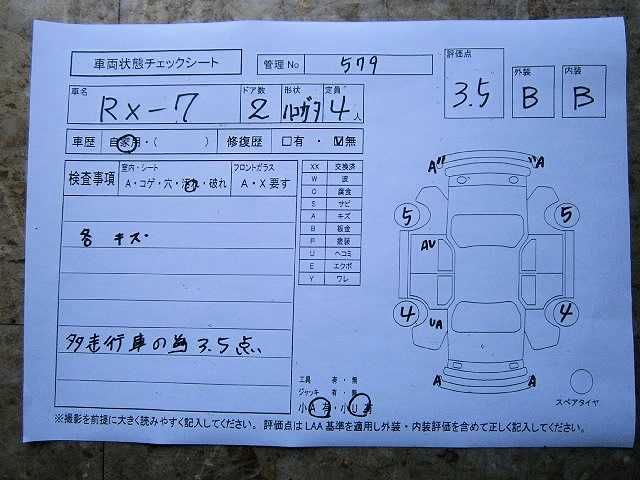 車両状態チェックシート 管理No 579 評価点 3.5 外装 B 内装 B
車名 RX-7 ドア数 2 形状 定員 4人
車歴 自家用・( ) 修復歴 □有・☑無
検査事項 室内・シート A・コゲ・穴・汚れ・破れ フロントガラス A・X要す
各 キズ
多走行車の為 3.5点
XX 交換済
W 波
C 腐食
S サビ
A キズ
B 板金
P 塗装
U ヘコミ
E エクボ
Y ワレ
A" "A
5 5
AU
4 4
UA
A A
スペアタイヤ
工具 有・無
ジャッキ 有・無
小A有・小U有
※撮影を前提に大きく読みやすく記入してください。評価点はLAA基準を適用し外装・内装評価を含めて正しく記入してください。